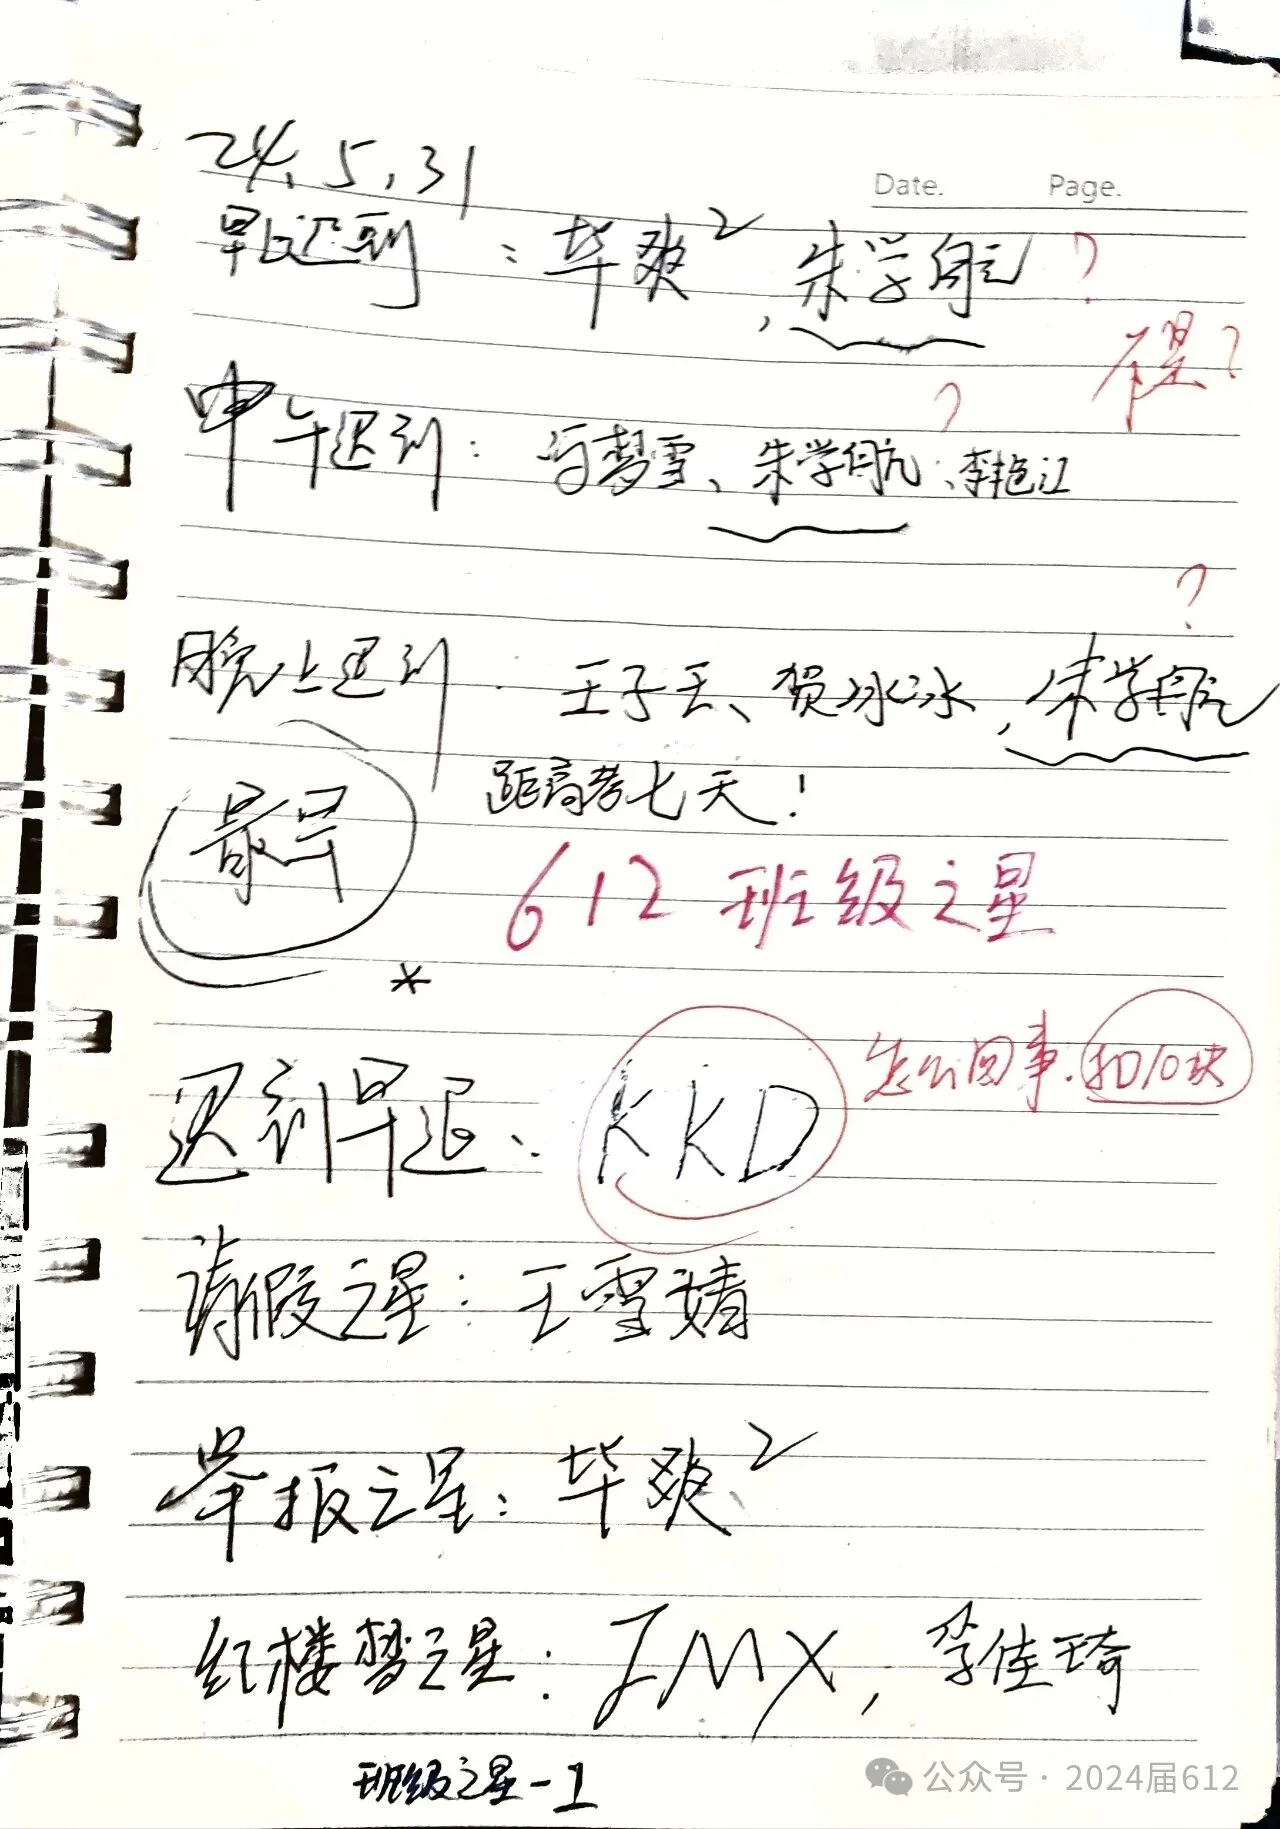 24.5.31
Date. Page.
早上迟到：毕爽²，朱学航？
不是？
中午迟到：冯梦雪、朱学航？、李艳江
晚上迟到：王子天、贺冰冰，朱学航？
距高考七天！
最早
612 班级之星
*
迟到早退、KKD 怎么回事.扣10块
请假之星：王雪婧
举报之星：毕爽²
红楼梦之星：FMX，李佳琦
班级之星-1
公众号·2024届612